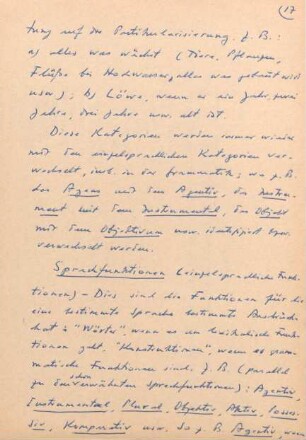 (17)
tung auf die Partikularisierung. Z. B.:
a) alles was wächst (Tiere, Pflanzen,
Flüsse bei Hochwasser, alles was gebaut wird
usw); b) Löwe, wenn er ein Jahr, zwei
Jahre, drei Jahre usw. alt ist.
Diese Kategorien werden immer wieder
mit den einzelsprachlichen Kategorien ver-
wechselt, insb. in der Grammatik; wo z. B.
das Agens mit dem Agentiv, das Instru-
ment mit dem Instrumental, das Objekt
mit dem Objektivum usw. identifiziert bzw.
verwechselt werden.
Sprachfunktionen (einzelsprachliche Funk-
tionen) – Dies sind die Funktionen für die
eine bestimmte Sprache bestimmte Ausdrücke
hat: "Wörter", wenn es um lexikalische Funk-
tionen geht, "Konstruktionen", wenn es gram-
matische Funktionen sind, z. B. (parallel
zu den schon erwähnten Sprachfunktionen): Agentiv,
Instrumental, Plural, Objektiv, Aktiv, Posses-
siv, Komparativ usw. So z. B. Agentiv, wenn